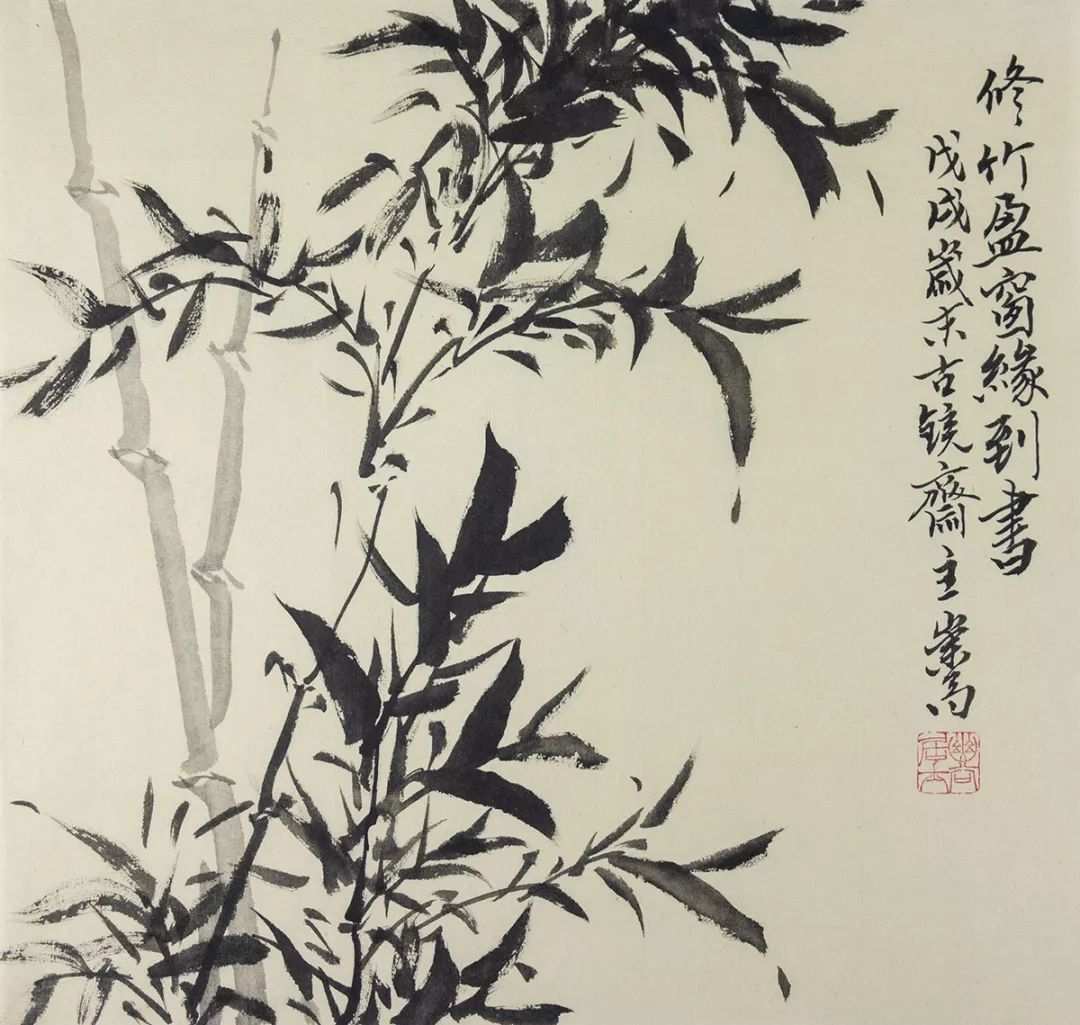 修竹盈窗緣到書
戊戌歲末古鏡齋主崇高